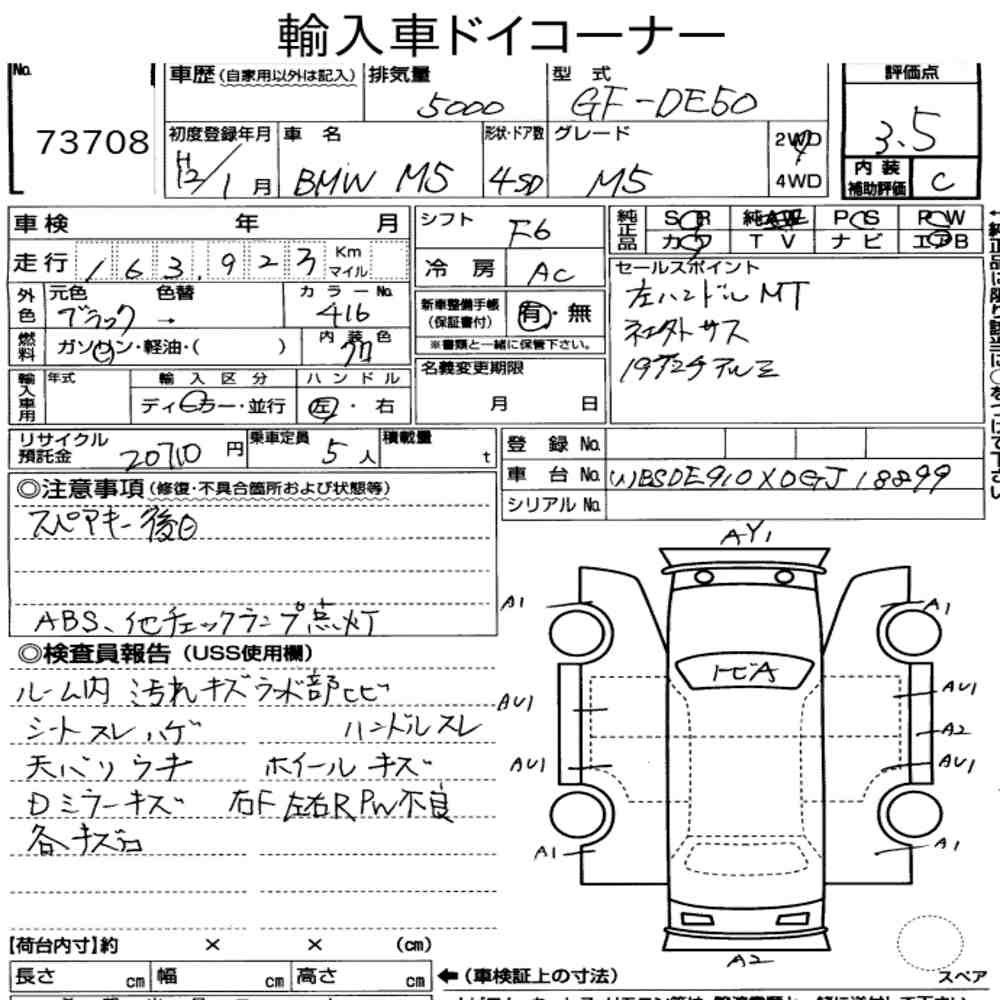 輸入車ドイコーナー
No. 73708
車歴(自家用以外は記入) 排気量 5000 型式 GF-DE50 評価点 3.5
初度登録年月 H12/1月 車名 BMW M5 形状・ドア数 4SD グレード M5 2WD 4WD 内装補助評価 C
車検 年 月
走行 163,923 Km マイル
外色 元色 ブラック 色替 → カラーNo. 416
燃料 ガソリン・軽油・( ) 内装色 クロ
輸入車用 年式 輸入区分 ディーラー・並行 ハンドル 左・右
シフト F6
冷房 AC
新車整備手帳(保証書付) 有・無
※書類と一緒に保管下さい。
名義変更期限 月 日
純正品 SR 純AW PS PW
カワ TV ナビ エアB
セールスポイント
左ハンドルMT
社外サス
19インチアルミ
リサイクル預託金 20710円 乗車定員 5人 積載量 t
登録No.
車台No. WBSDE910X0GJ18899
シリアルNo.
◎注意事項(修復・不具合箇所および状態等)
スペアキー後日
ABS、他チェックランプ点灯
◎検査員報告(USS使用欄)
ルーム内 汚れキズラッカ部ヒビ
シートスレハゲ ハンドルスレ
天バリウキ ホイールキズ
Dミラーキズ 右F左右RPW不良
各キズ凹
AY1
A1 A1
トビA
AU1 AU1
A2
AU1 AU1
A1 A1
A2
スペア
【荷台内寸】約 × × (cm)
長さ cm 幅 cm 高さ cm ←(車検証上の寸法)